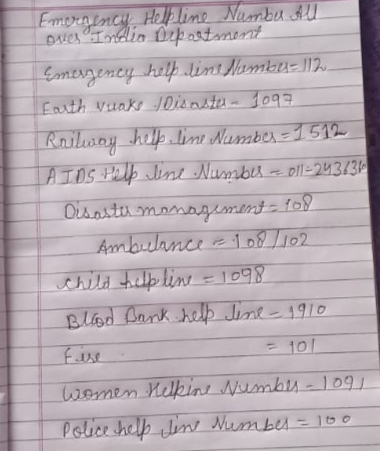 Emergency Helpline Number All
over India Department
Emergency help line Number = 112
Earth Quake / Disaster - 1097
Railway help line Number = 1512
AIDS Help line Number = 011-243636
Disaster management = 108
Ambulance = 108/102
child helpline = 1098
Blood Bank help line - 1910
Fire = 101
Women Helpine Number - 1091
Police help line Number = 100